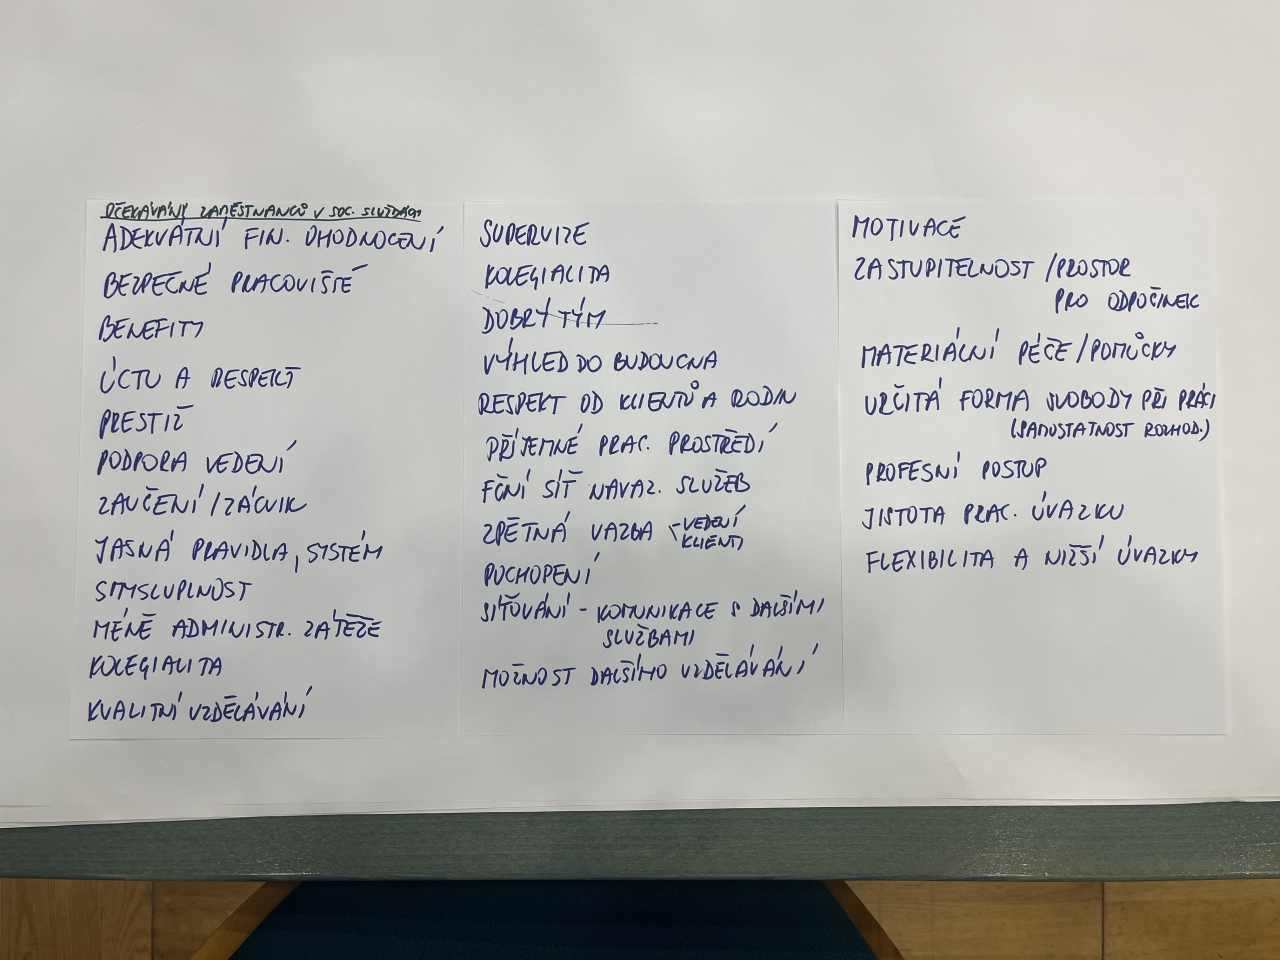 OČEKÁVÁNÍ ZAMĚSTNANCŮ V SOC. SLUŽBÁCH
ADEKVÁTNÍ FIN. OHODNOCENÍ
BEZPEČNÉ PRACOVIŠTĚ
BENEFITY
ÚCTU A RESPEKT
PRESTIŽ
PODPORA VEDENÍ
ZAUČENÍ/ZÁCVIK
JASNÁ PRAVIDLA, SYSTÉM
SMYSLUPLNOST
MÉNĚ ADMINISTR. ZÁTĚŽE
KOLEGIALITA
KVALITNÍ VZDĚLÁVÁNÍ
SUPERVIZE
KOLEGIALITA
DOBRÝ TÝM
VÝHLED DO BUDOUCNA
RESPEKT OD KLIENTŮ A RODIN
PŘÍJEMNÉ PRAC. PROSTŘEDÍ
FČNÍ SÍŤ NÁVAZ. SLUŽEB
ZPĚTNÁ VAZBA < VEDENÍ
KLIENTI
POCHOPENÍ
SÍŤOVÁNÍ - KOMUNIKACE S DALŠÍMI
SLUŽBAMI
MOŽNOST DALŠÍHO VZDĚLÁVÁNÍ
MOTIVACE
ZASTUPITELNOST/PROSTOR
PRO ODPOČINEK
MATERIÁLNÍ PÉČE/POMŮCKY
URČITÁ FORMA SVOBODY PŘI PRÁCI
(SAMOSTATNOST ROZHOD.)
PROFESNÍ POSTUP
JISTOTA PRAC. ÚVAZKU
FLEXIBILITA A NIŽŠÍ ÚVAZKY